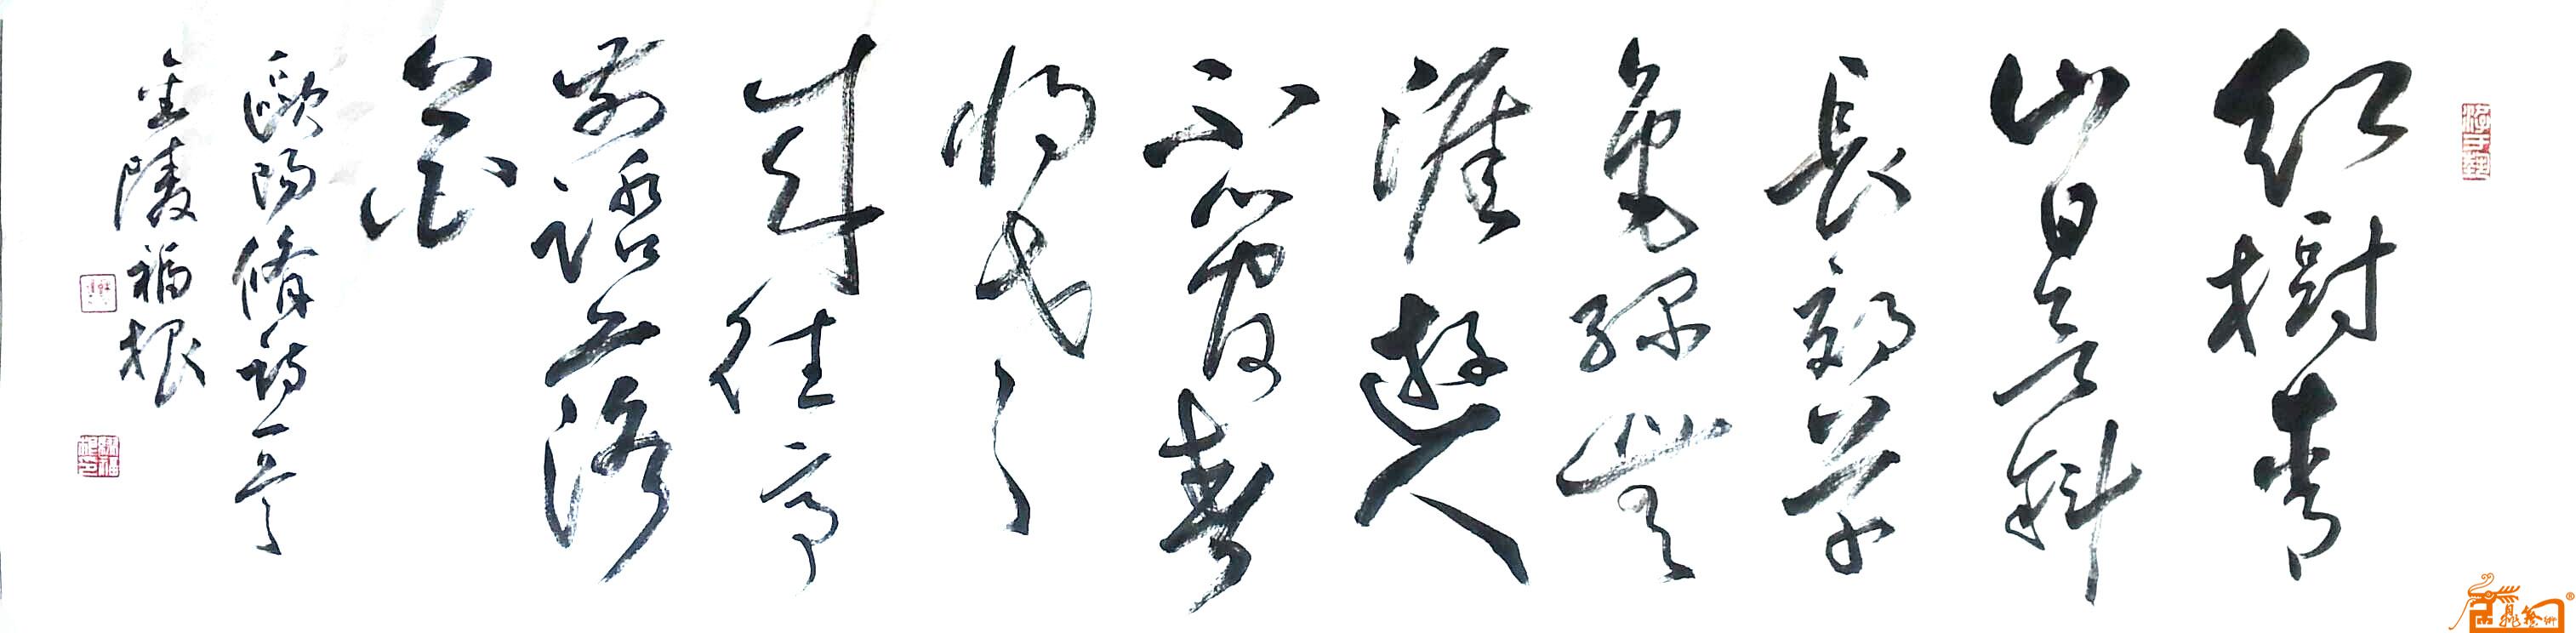 紅樹青
山日欲斜
長郊草
色綠無
涯遊人
不管春
將老
來往亭
前踏落
花
歐陽脩詩一首
金陵福根